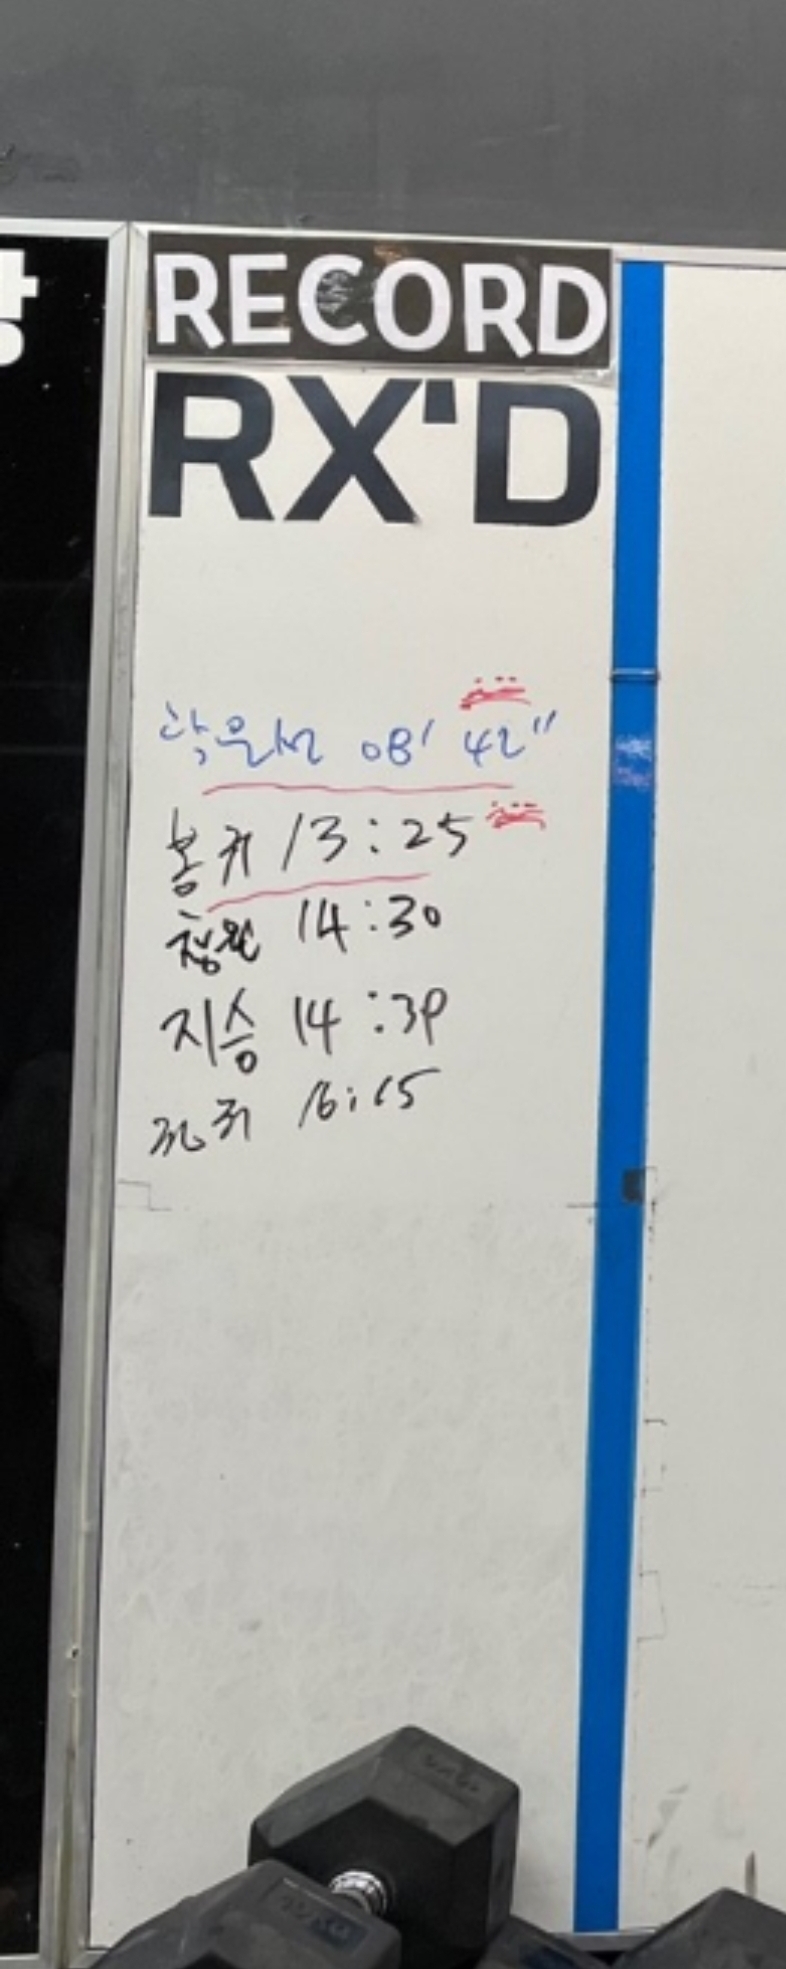 RECORD
RX'D
08' 42"
13:25
창원 14:30
지승 14:39
16:15